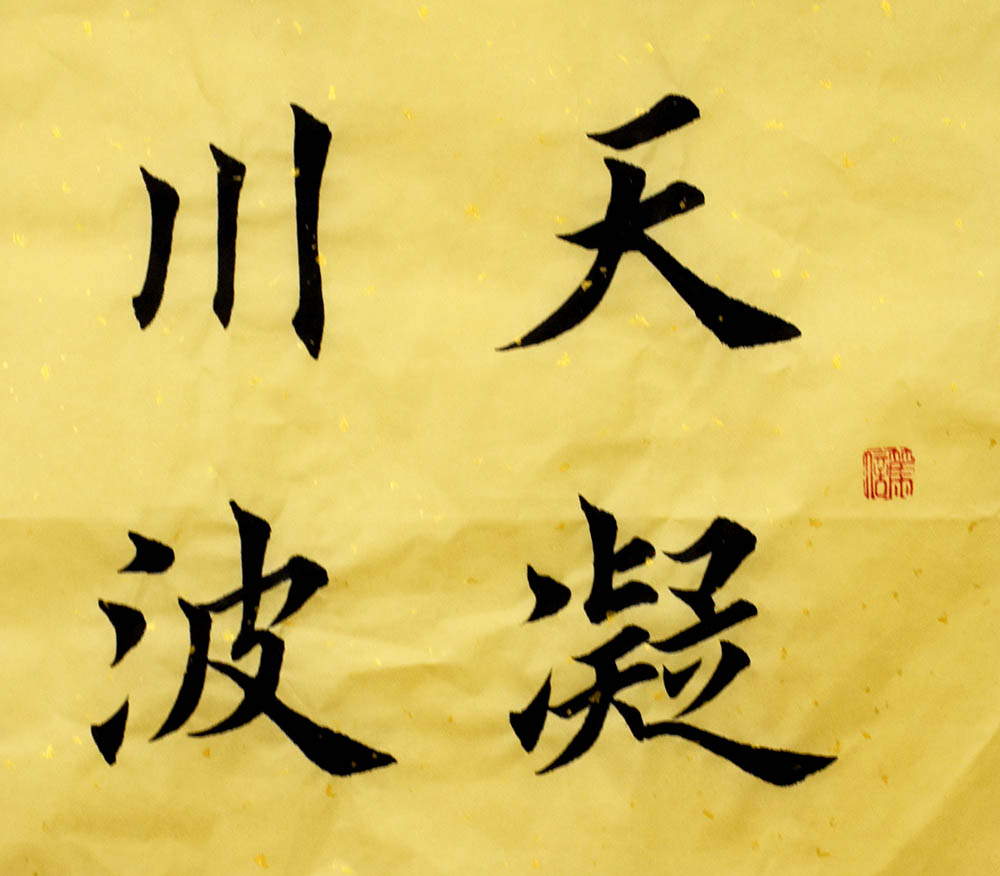 天凝
川波